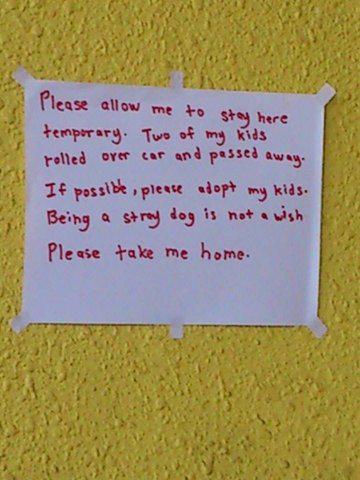 Please allow me to stay here
temporary. Two of my kids
rolled over car and passed away.
If possible, please adopt my kids.
Being a stray dog is not a wish
Please take me home.